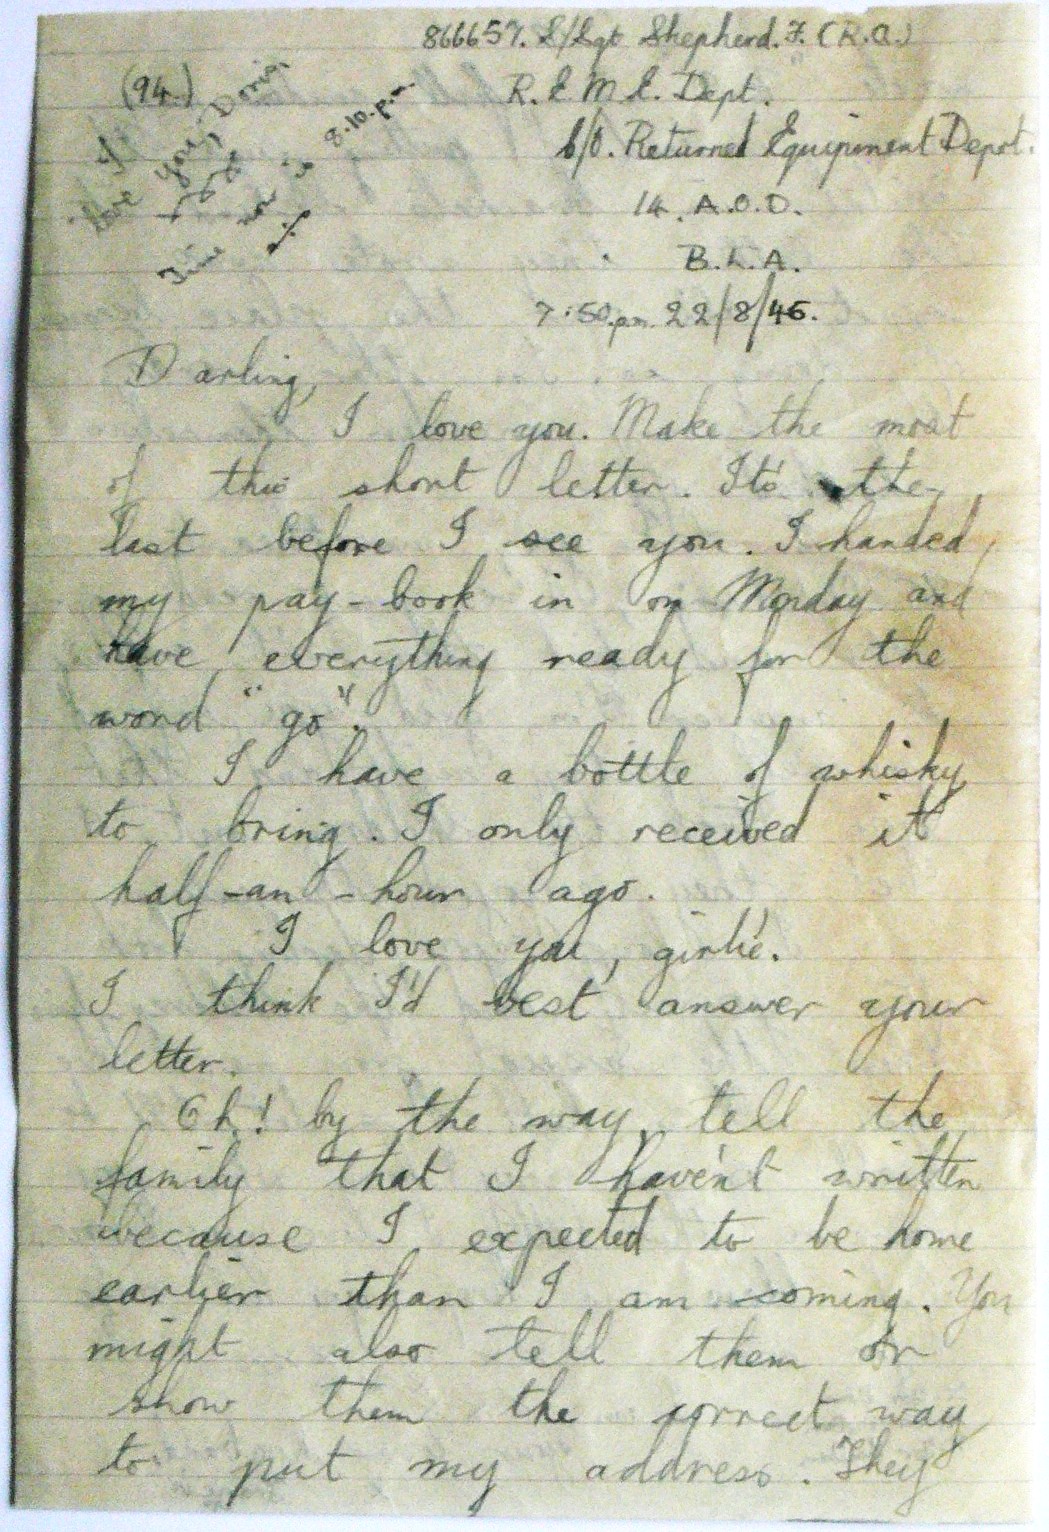 866657. S/Sgt Shepherd. F. (R.A.)
(94.)
R.E.M.E. Dept.
C/O. Returned Equipment Depot.
14. A.O.D.
B.L.A.
7:50.p.m. 22/8/45.
I
love you, Doris,
Time now is 8.10.p.m.
Darling,
I love you. Make the most
of this short letter. It's the
last before I see you. I handed
my pay-book in on Monday and
have everything ready for the
word "go".
I have a bottle of whisky
to bring. I only received it
half-an-hour ago.
I love you, girlie.
I think I'd best answer your
letter.
Oh! by the way, tell the
family that I haven't written
because I expected to be home
earlier than I am coming. You
might also tell them or
show them the correct way
to put my address. They